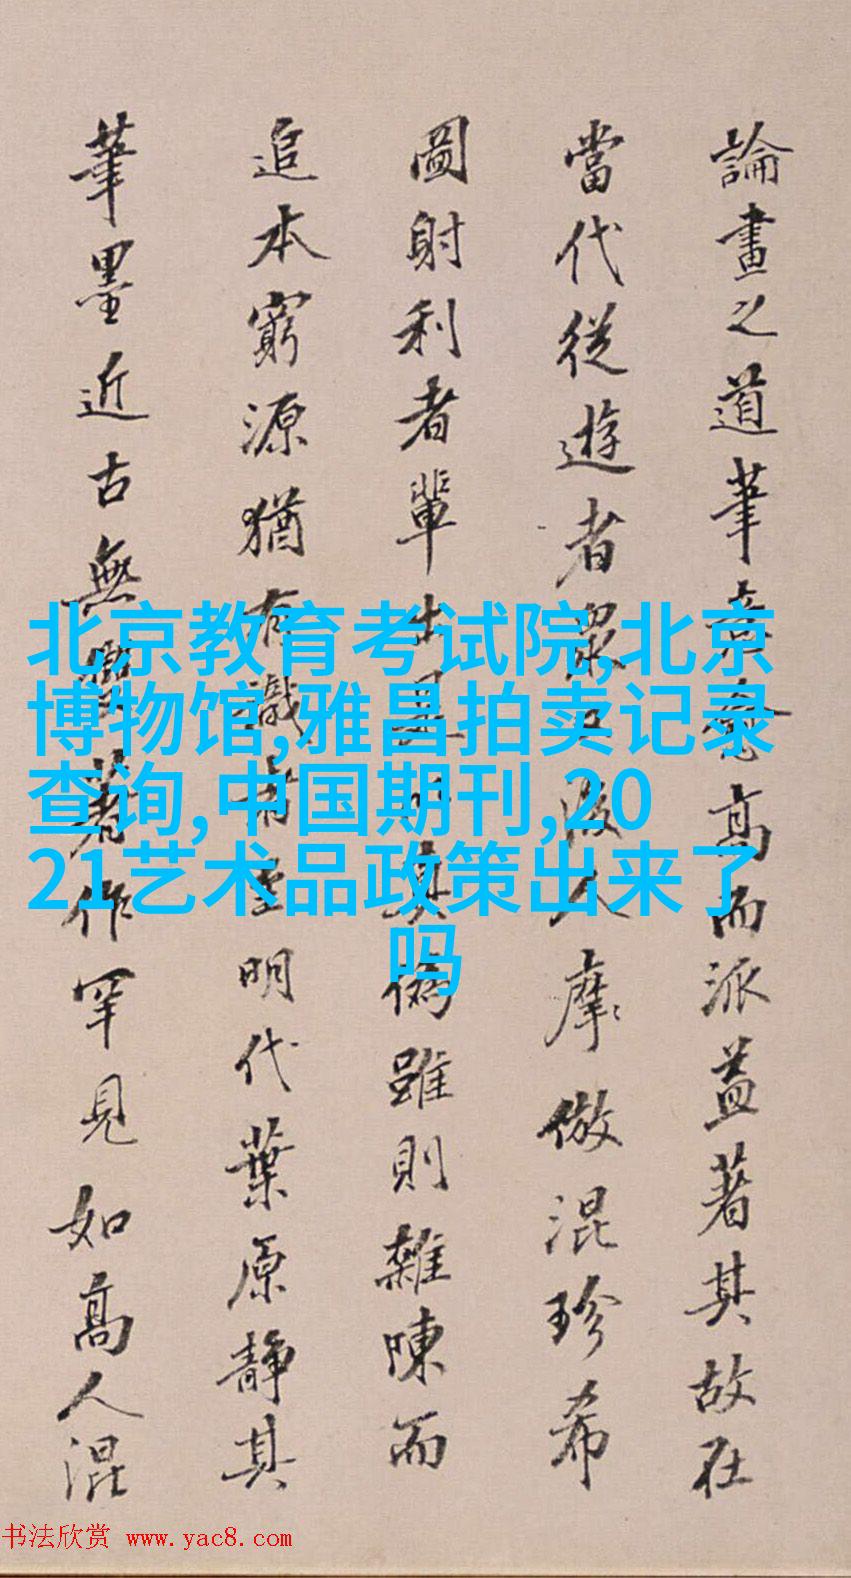 論畫之道筆意兼高而派益著其故在
當代從遊者眾又後人摩倣混珍希
圖射利者輩出是以真偽雖則雜陳而
追本窮源猶有識者在明代葉原靜其
筆墨近古無著作罕見如高人混
北京教育考试院,北京
博物馆,雅昌拍卖记录
查询,中国期刊,20
21艺术品政策出来了
吗
书法欣赏 www.yac8.com